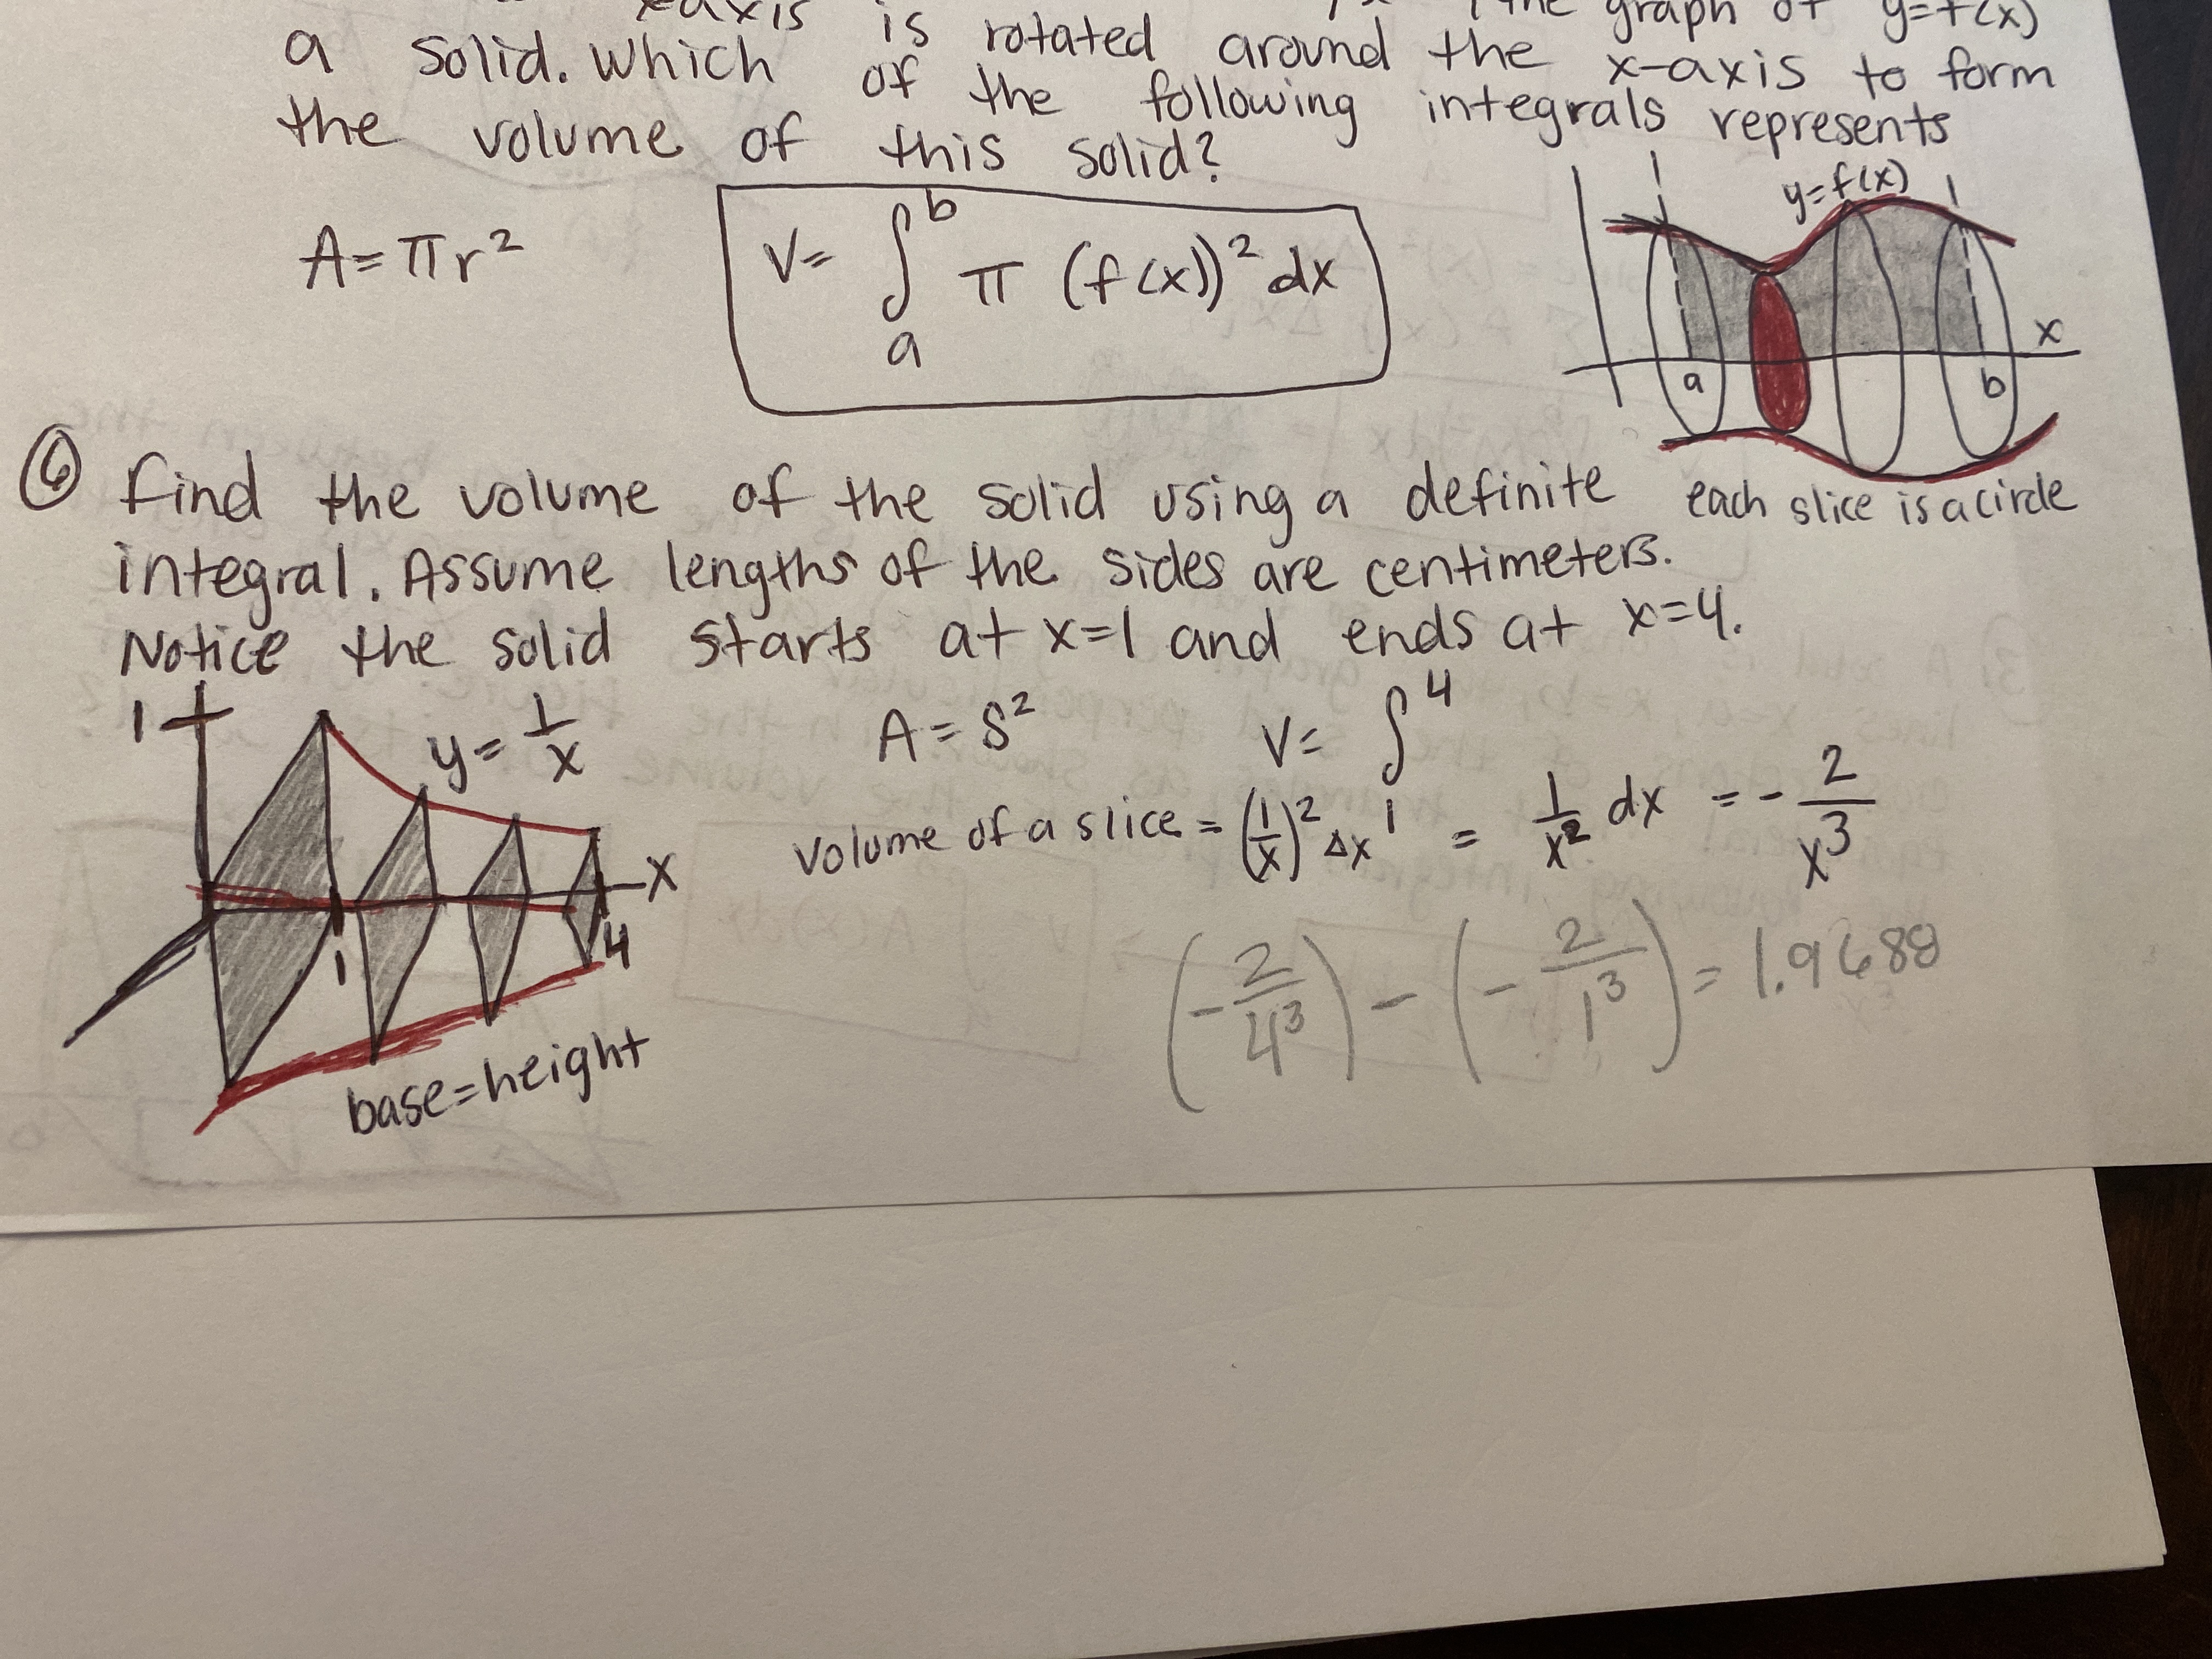 x-axis is the graph of y=f(x)
a solid. Which is rotated around the x-axis to form
of the following integrals represents
the volume of this solid?
A=πr²
V= ∫ₐᵇ π (f(x))² dx
y=f(x)
x
a
b
each slice is a circle
⑥ Find the volume of the solid using a definite
integral. Assume lengths of the sides are centimeters.
Notice the solid starts at x=1 and ends at x=4.
1
y = 1/x
x
1
4
base=height
A = S²
V= ∫₁⁴
volume of a slice = (1/x)² Δx = 1/x² dx = - 2/x³
(-2/4³) - (-2/1³) = 1.9688